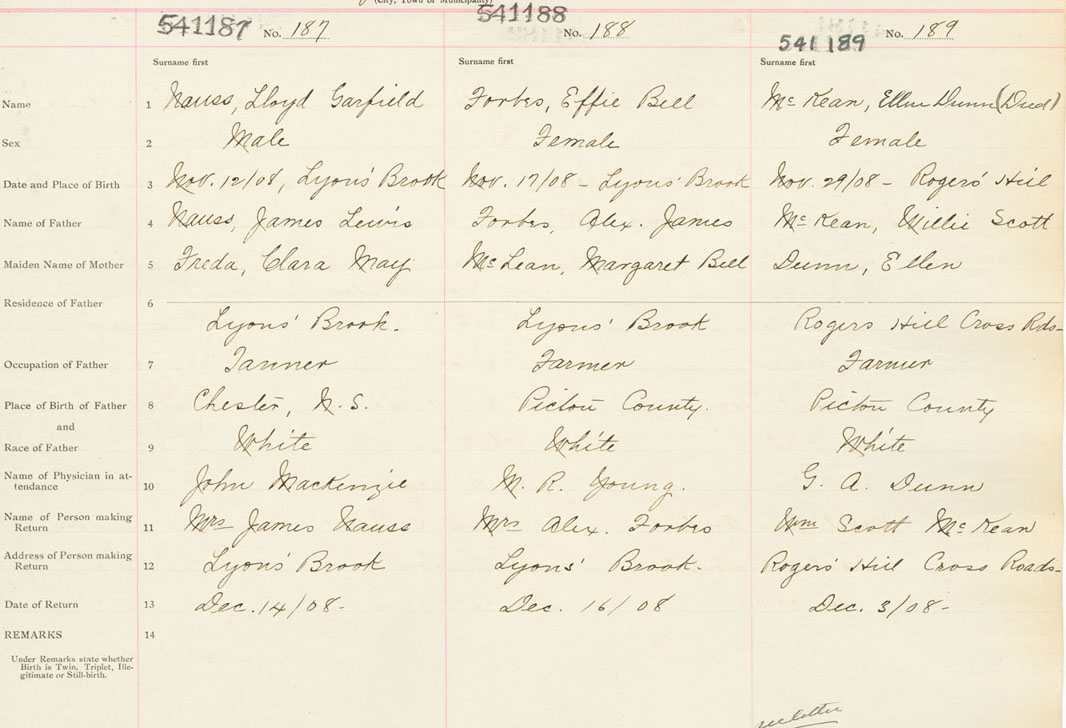 (City, Town or Municipality)
541187 No. 187
541188 No. 188
541189 No. 189
Surname first Surname first Surname first
Name 1 Nauss, Lloyd Garfield Forbes, Effie Bell McKean, Ellen Dunn (Dead)
Sex 2 Male Female Female
Date and Place of Birth 3 Nov. 12/08, Lyons' Brook Nov. 17/08 - Lyons' Brook Nov. 29/08 - Rogers' Hill
Name of Father 4 Nauss, James Lewis Forbes, Alex. James McKean, Willie Scott
Maiden Name of Mother 5 Freda, Clara May McLean, Margaret Bell Dunn, Ellen
Residence of Father 6
Lyons' Brook. Lyons' Brook Rogers Hill Cross Rds-
Occupation of Father 7 Tanner Farmer Farmer
Place of Birth of Father 8 Chester, N.S. Pictou County. Pictou County
and
Race of Father 9 White White White
Name of Physician in at-
tendance 10 John MacKenzie M. R. Young. G. A. Dunn
Name of Person making
Return 11 Mrs James Nauss Mrs Alex. Forbes Wm Scott McKean
Address of Person making
Return 12 Lyons' Brook Lyons' Brook. Rogers' Hill Cross Roads-
Date of Return 13 Dec. 14/08- Dec. 16/08 Dec. 3/08-
REMARKS 14
Under Remarks state whether
Birth is Twin, Triplet, Ille-
gitimate or Still-birth.
see letter